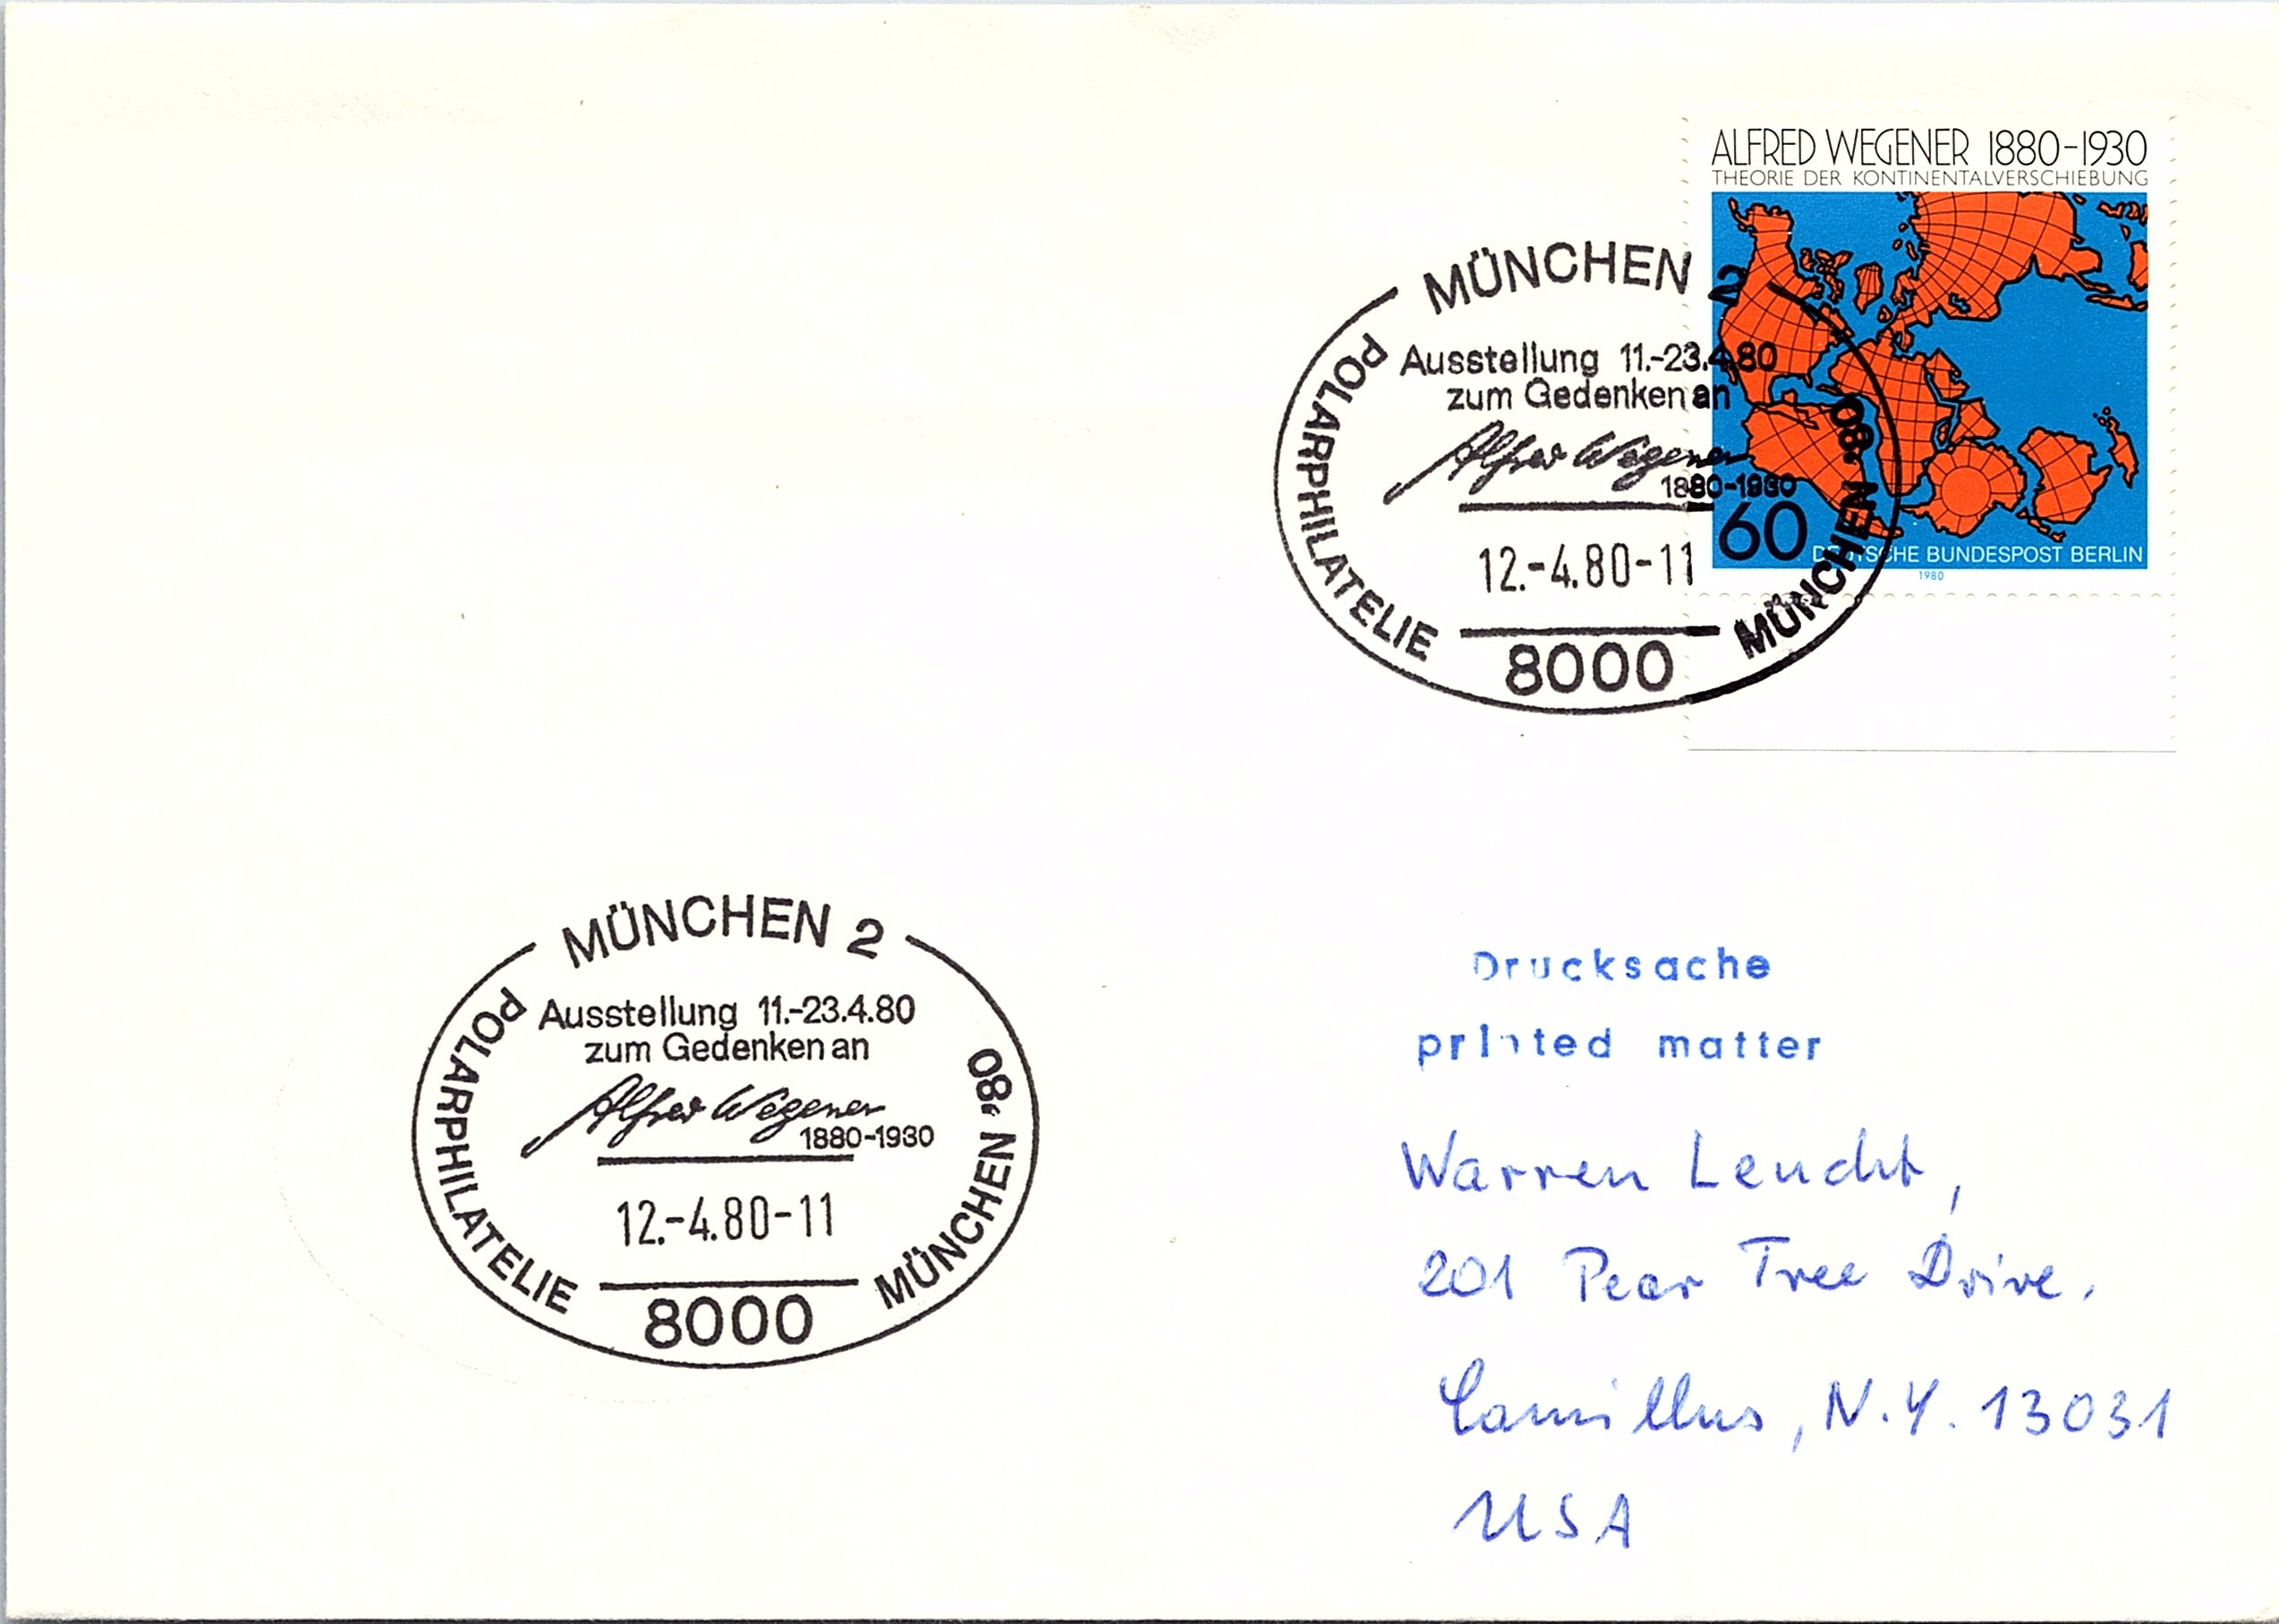 ALFRED WEGENER 1880-1930
THEORIE DER KONTINENTALVERSCHIEBUNG
60
DEUTSCHE BUNDESPOST BERLIN
1980
MÜNCHEN 2
Ausstellung 11.-23.4.80
zum Gedenken an
Alfred Wegener
1880-1930
12.-4.80-11
8000
POLARPHILATELIE
MÜNCHEN '80
MÜNCHEN 2
Ausstellung 11.-23.4.80
zum Gedenken an
Alfred Wegener
1880-1930
12.-4.80-11
8000
POLARPHILATELIE
MÜNCHEN '80
Drucksache
printed matter
Warren Leucht,
201 Pear Tree Drive.
Camillus, N.Y. 13031
USA